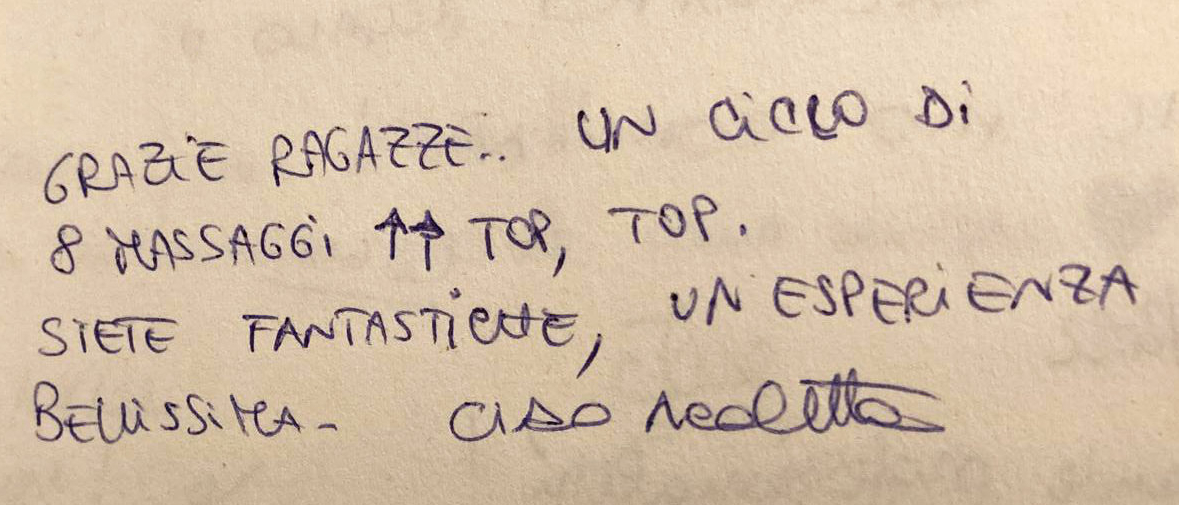 GRAZIE RAGAZZE.. UN CICLO DI
8 MASSAGGI ↑↑ TOP, TOP.
SIETE FANTASTICHE, UN ESPERIENZA
BELLISSIMA - CIAO